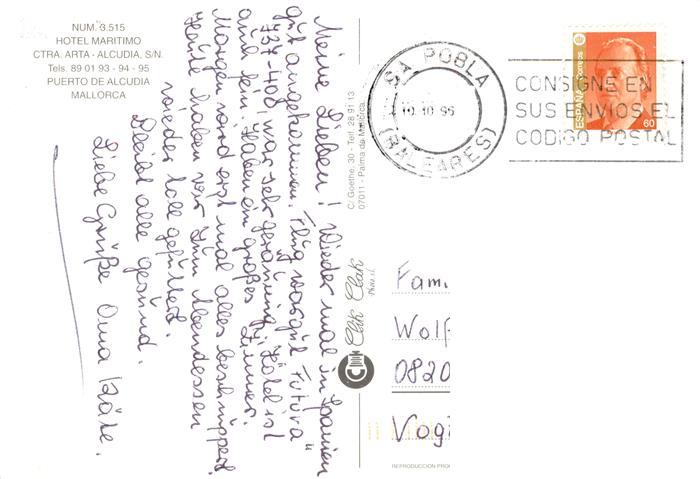 NUM. 3.515
HOTEL MARITIMO
CTRA. ARTA - ALCUDIA, S/N.
Tels. 89 01 93 - 94 - 95
PUERTO DE ALCUDIA
MALLORCA
Meine Lieben! Wieder mal in Spanien
gut angekommen. Flug war gut "Futura
737-400, war sehr geräumig." Hotel ist
auch fein. Haben ein großes Zimmer.
Morgen wird erst mal alles beschnuppert
Heute haben wir zum Abendessen
wieder toll gefuttert.
Bleibt alle gesund.
Liebe Grüße Oma Käte.
C/ Goethe, 30 - Telf. 28 91 13
07011 - Palma de Mallorca
Clik Clak
Phot. sl.
SA POBLA
10 10 96
(BALEARES)
CONSIGNE EN
SUS ENVIOS EL
CODIGO POSTAL
ESPAÑA Correos
60
Fam.
Wolf
0820
Vogt
REPRODUCCION PROH